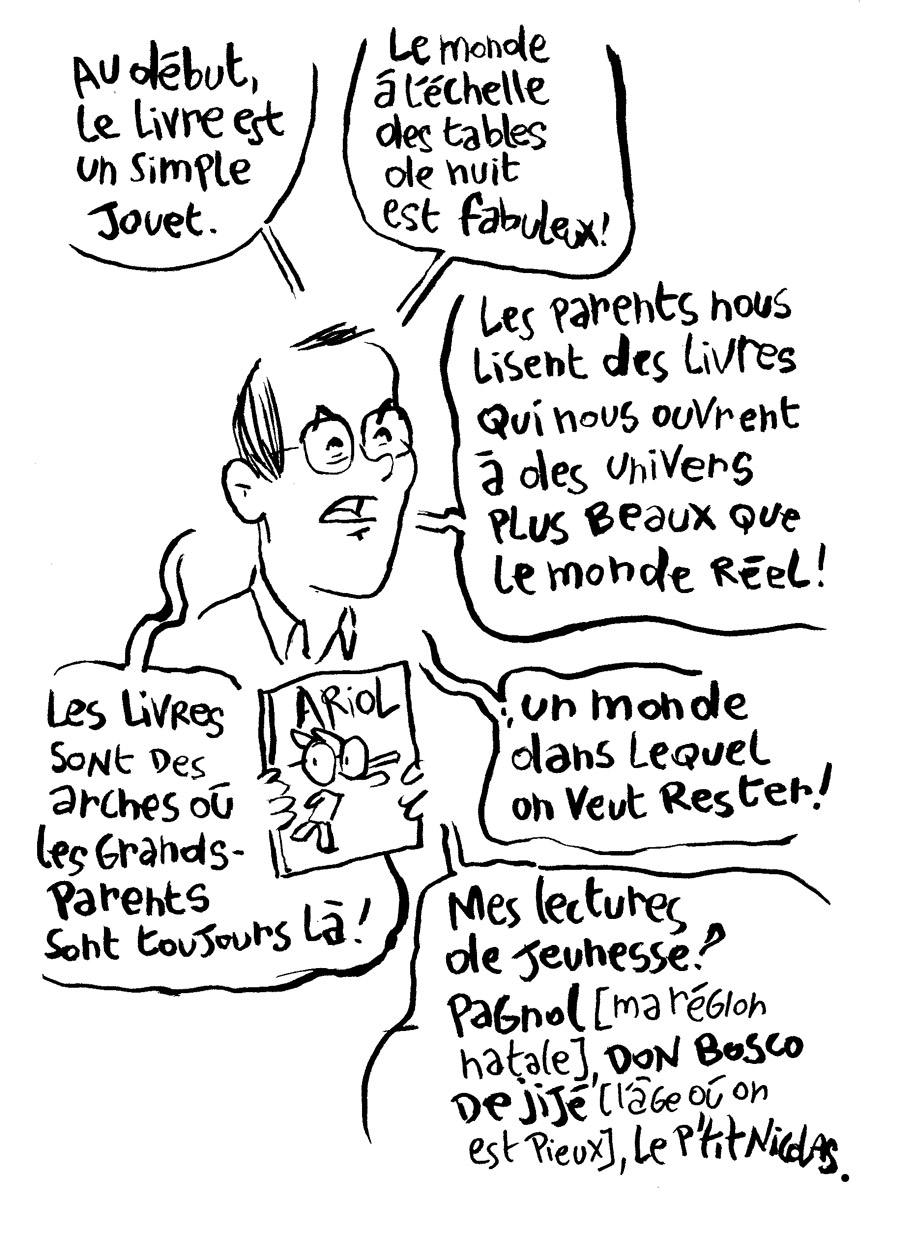 Au début,
le livre est
un simple
jouet.
Le monde
à l'échelle
des tables
de nuit
est fabuleux!
Les parents nous
lisent des livres
qui nous ouvrent
à des univers
plus beaux que
le monde réel!
Les livres
sont des
arches où
les grands-
parents
sont toujours là!
ARIOL
un monde
dans lequel
on veut rester!
Mes lectures
de jeunesse?
Pagnol [ma région
natale], Don Bosco
de Jijé [l'âge où on
est pieux], le P'tit Nicolas.